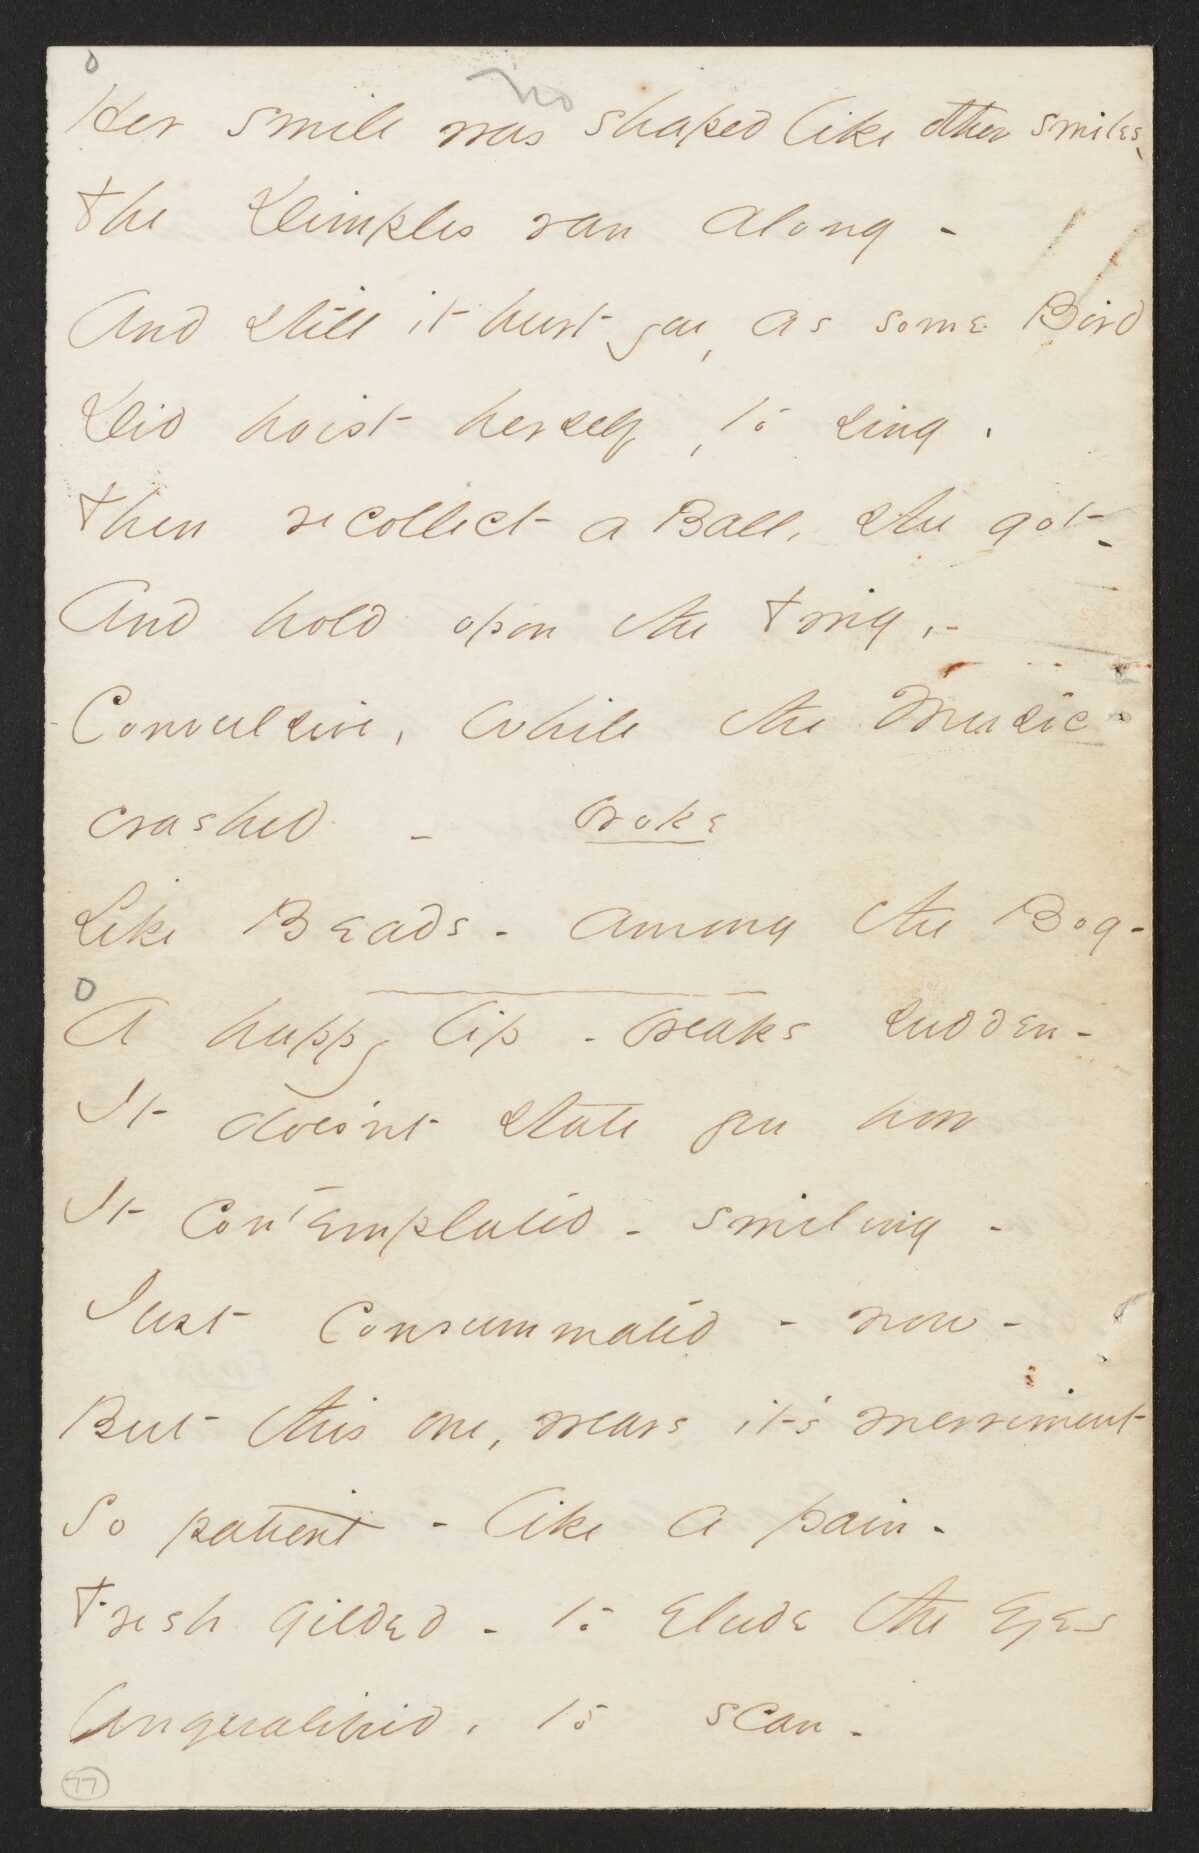 0
no
Her smile was shaped like other smiles,
The Dimples ran along -
And still it hurt you, as some Bird
Did hoist herself, to sing,
Then recollect a Ball, she got -
And hold upon the Twig, -
Convulsive, while the Music
crashed - broke
Like Beads - among the Bog -
0
A happy lip - breaks sudden -
It doesn't state you how
It contemplated - smiling -
Just consummated - now -
But this one, wears it's merriment
So patient - like a pain -
Fresh gilded - to elude the Eyes
Unqualified, to scan -
77